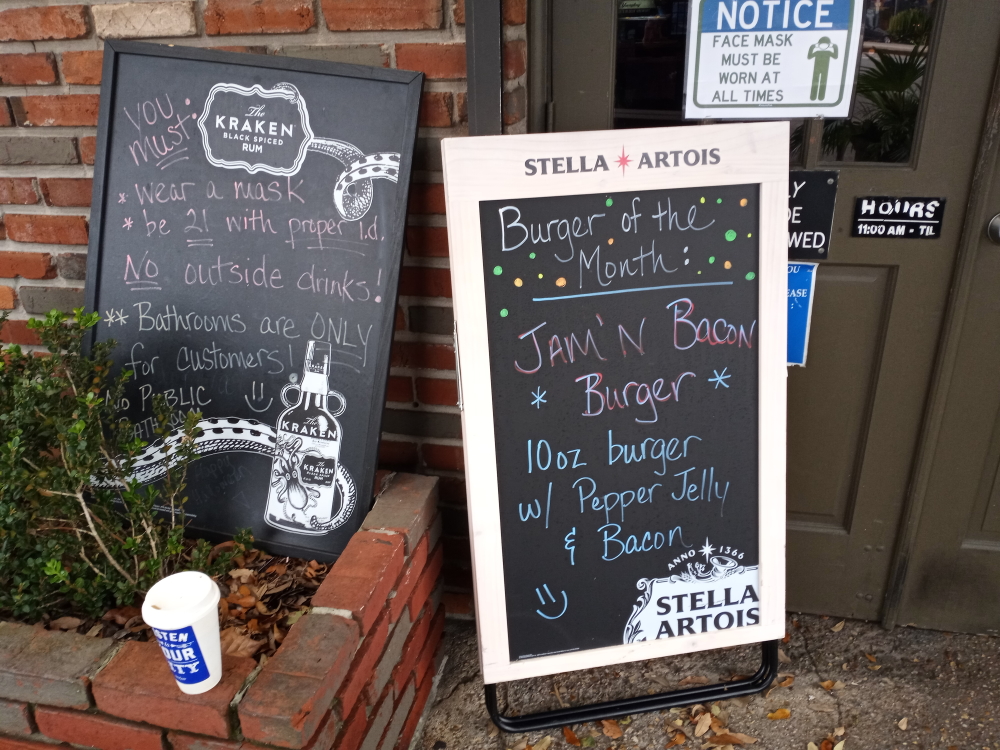 YOU
MUST:
The
KRAKEN
BLACK SPICED
RUM
* wear a mask
* be 21 with proper i.d.
No outside drinks!
** Bathrooms are ONLY
for customers!
NO PUBLIC
The
KRAKEN
The
KRAKEN
BLACK SPICED
RUM
OUR
STELLA ARTOIS
Burger of the
Month
JAM'N BACON
* Burger *
10oz burger
w/ Pepper Jelly
& Bacon
ANNO 1366
STELLA
ARTOIS
NOTICE
FACE MASK
MUST BE
WORN AT
ALL TIMES
HOURS
11:00 AM - TIL